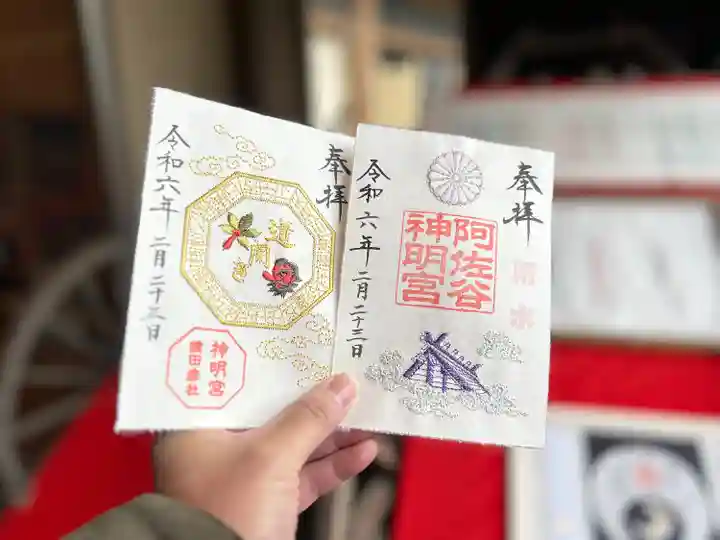 奉拝
道
開
き
令和六年 二月二十三日
神明宮
猿田彦社
奉拝
阿佐谷
神明宮
令和六年 二月二十三日